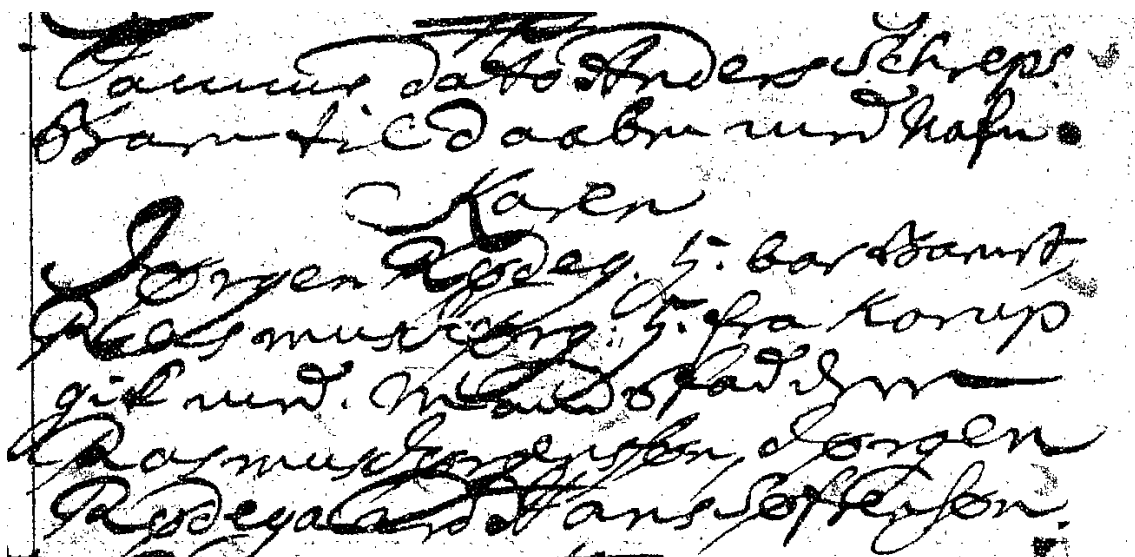 dato Anders Schreps
Barn til Daaben med Nafn
Karen
Jørgen Rødeg. H. bar Barnet,
Rasmus Jørg: H. fra Korup
gik med. Mands fadder
Rasmus Jørgensøn, Jørgen
Rødegaard Hans Søfrensøn.